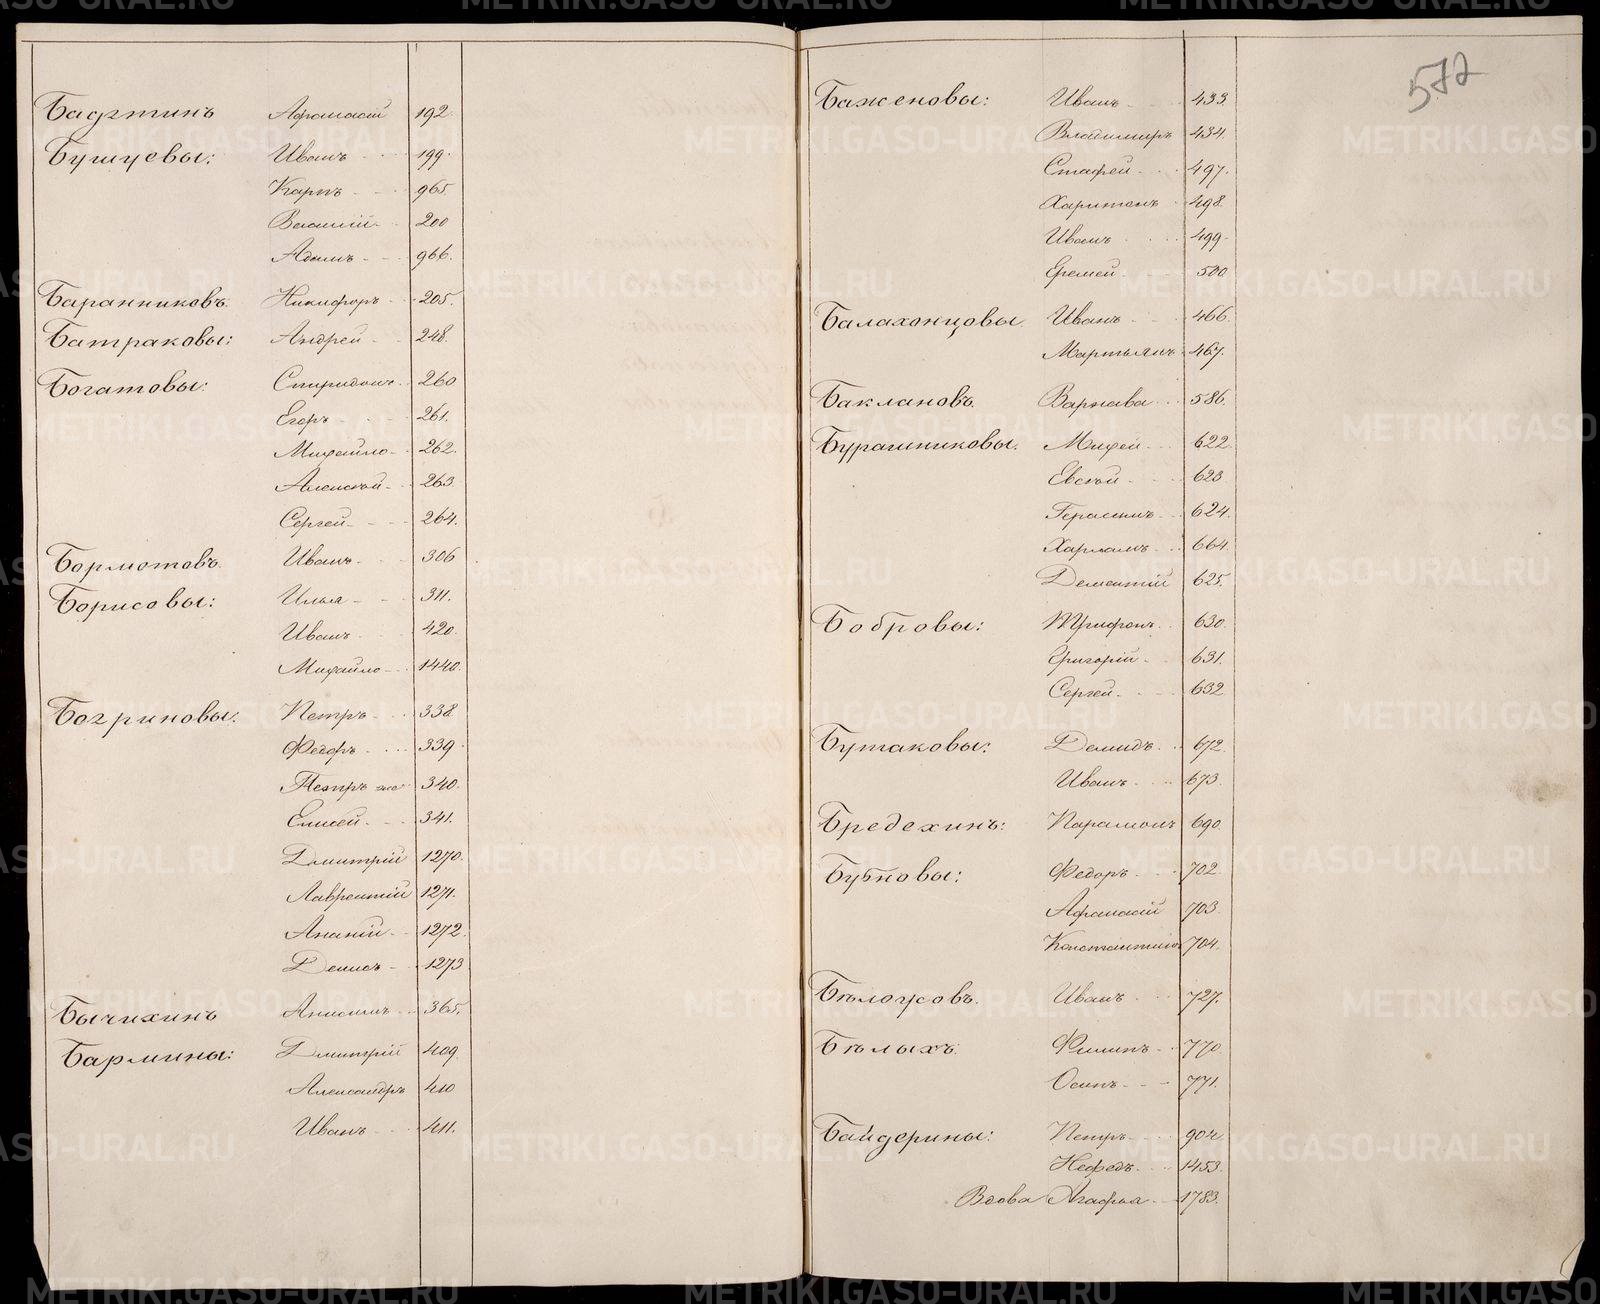 Бушуевы: Иванъ 199.
Карпъ 965.
Василій 200
Адамъ 966.
Баранниковъ. Никифоръ 205.
Батраковы: Андрей 248.
Богатовы: Спиридонъ 260
Егоръ 261.
Михайло 262.
Алексѣй 263
Сергей 264.
Бормотовъ Иванъ 306
Борисовы: Илья 311.
Иванъ 420.
Михайло 1440.
Богриновы. Петръ 338
Федоръ 339
Петръ же 340.
Елисей 341.
Дмитрій 1270.
Лаврентій 1271.
Ананій 1272.
Денисъ 1273
Бычихинъ Анисимъ 365.
Бармины: Дмитрій 409
Александръ 410
Иванъ 411.
572
Баженовы: Иванъ 433.
Владимиръ 434.
Стафей 497.
Харитонъ 498.
Иванъ 499.
Еремей 500
Балахонцовы Иванъ 466.
Мартьянъ 467.
Баклановъ. Варнава 586.
Бурашниковы. Мифей 622
Евсѣй 623
Герасимъ 624.
Харламъ 664.
Дементій 625.
Бобровы: Трифонъ 630.
Григорій 631.
Сергей 632
Бутаковы: Демидъ 672.
Иванъ 673.
Бредехинъ: Парамонъ 690.
Бубновы: Федоръ 702
Афанасій 703.
Константинъ 704.
Бѣлоусовъ. Иванъ 727.
Бѣлыхъ. Филипъ 770
Осипъ 771.
Байдерины: Петръ 904.
Нефедъ 1453.
Вдова Агафья 1783.
METRIKI.GASO-URAL.RU